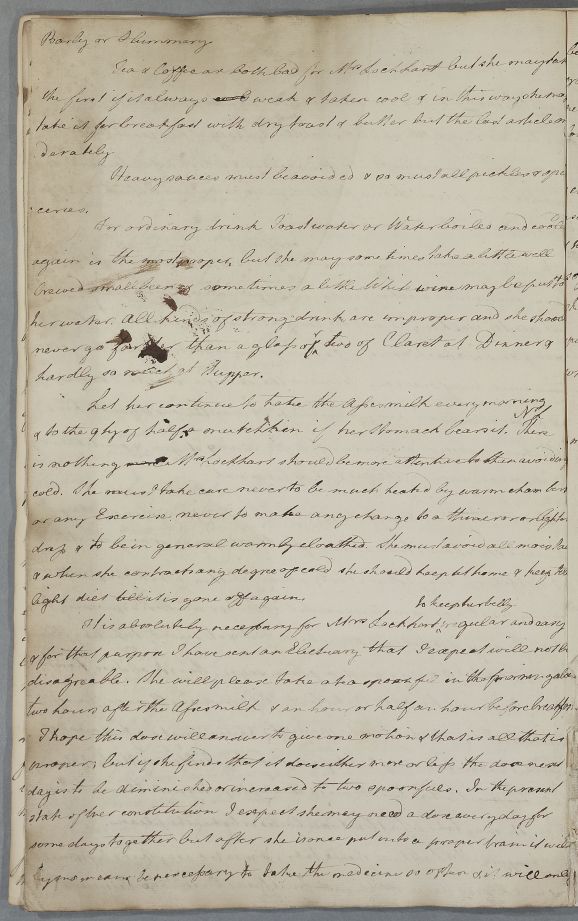 Barley or Flummary
Tea & Coffee are both bad for Mrs Lockhart but she may take
the first if it always weak & taken cool & in this way she may
take it for breakfast with dry toast & butter but the last article mo
derately
Heavy sauces must be avoided & so must all pickles & spi
ceries.
For ordinary drink Toast water or Water boiled and cooled
again is the most proper, but she may some times take a little well
brewed small beer or sometimes a little White wine may be put to
her water. All kinds of strong drink are improper and she should
never go farther than a glass or two of Claret at Dinner &
hardly so much at Supper.
Let her continue to take the Asses milk every morning
& to the qty of half a mutchkin if her Stomach bears it. There
is nothing Mrs Lockhart should be more attentive to than avoiding
cold. She must take care never to be much heated by warm chambers
or any Exercise, never to make any change to a thinner or lighter
dress & to be in general warmly cloathed. She must avoid all moist
& when she contracts any degree of cold she should keep at home & keep
light diet till it is gone off again.
to keep her belly
It is absolutely necessary for Mrs Lockhart regular and easy
& for that purpose I have sent an Electuary that I expect will not be
disagreable. She will please take a tea spoonful in the forenoon
two hours after the Asses milk & an hour or half an hour before breakfast
I hope this dose will answer to give one motion & that is all that is
proper, but if she finds that it does either more or less the dose next
day is to be diminished or increased to two spoonfuls. In the present
state of her constitution I expect she may need a dose every day for
some days together but after she is once put into a proper train it will
by no means be necessary to take the medicine so often & it will only